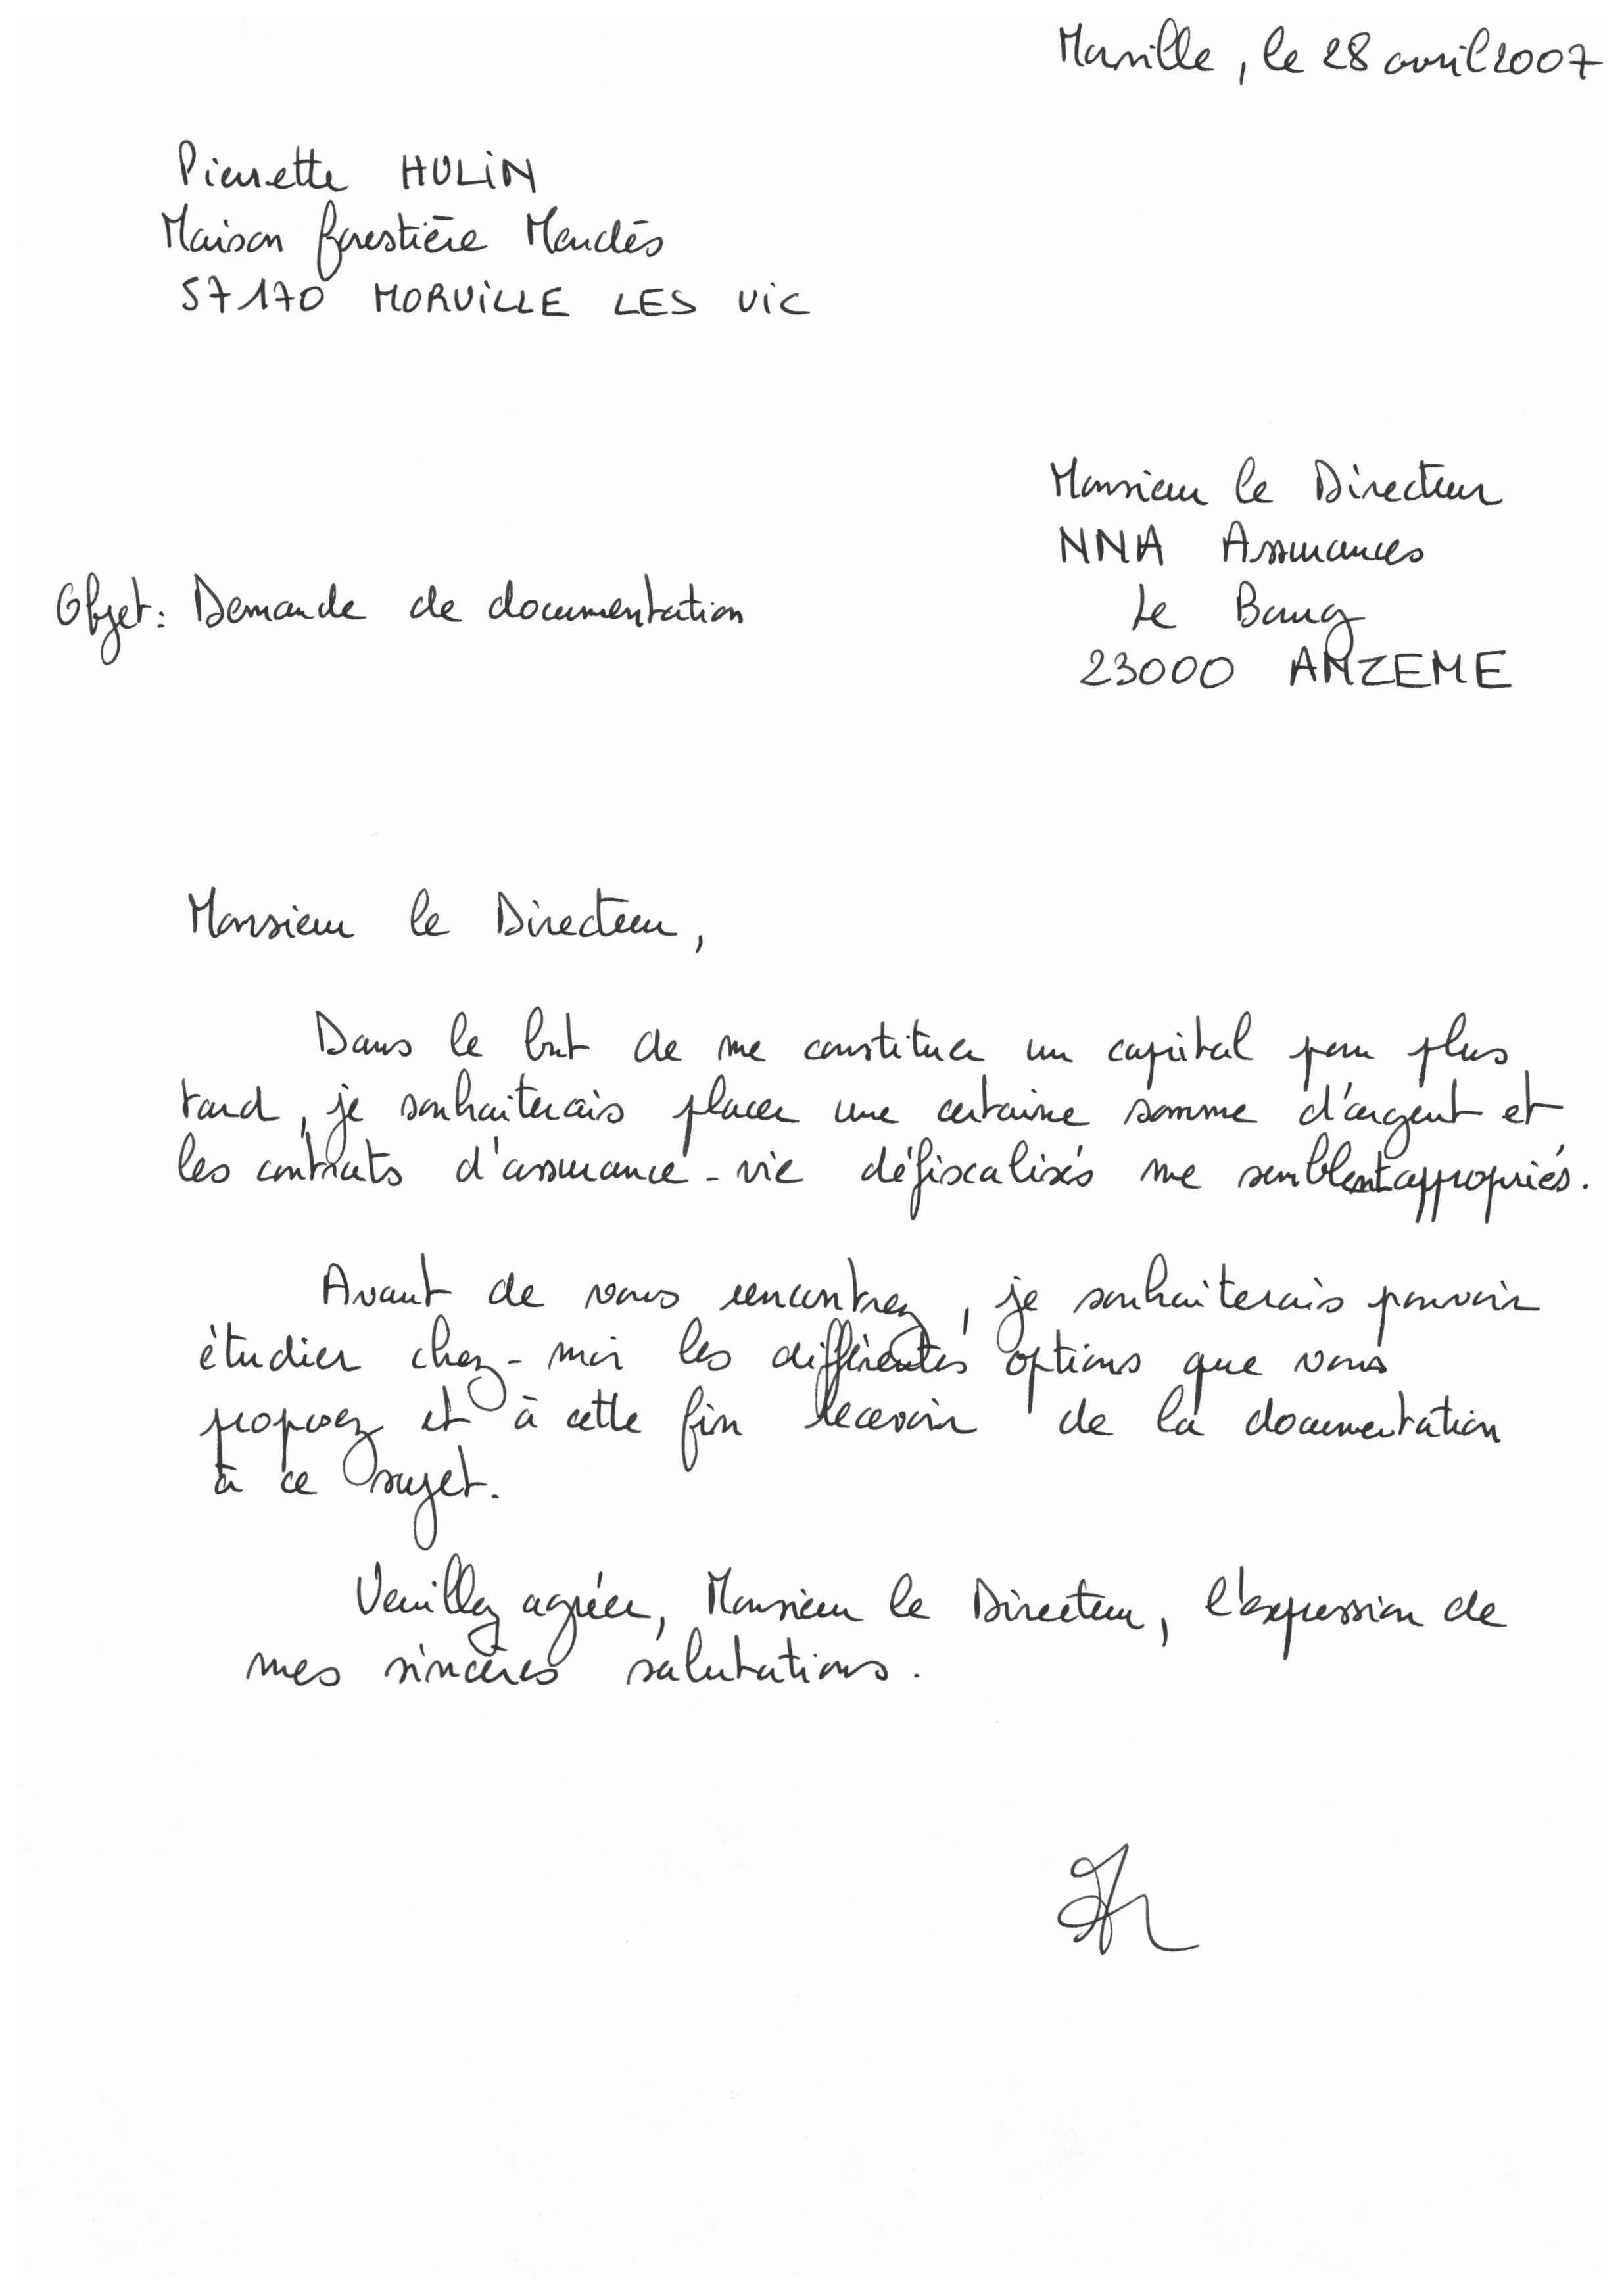 Morville, le 28 avril 2007
Pierrette HULIN
Maison forestière Mendès
57170 MORVILLE LES VIC
Monsieur le Directeur
NNA Assurances
Le Bourg
23000 ANZEME
Objet: Demande de documentation
Monsieur le Directeur,
Dans le but de me constituer un capital pour plus
tard, je souhaiterais placer une certaine somme d'argent et
les contrats d'assurance-vie défiscalisés me semblent appropriés.
Avant de vous rencontrez, je souhaiterais pouvoir
étudier chez-moi les différentes options que vous
proposez et à cette fin recevoir de la documentation
à ce sujet.
Veuillez agréer, Monsieur le Directeur, l'expression de
mes sincères salutations.